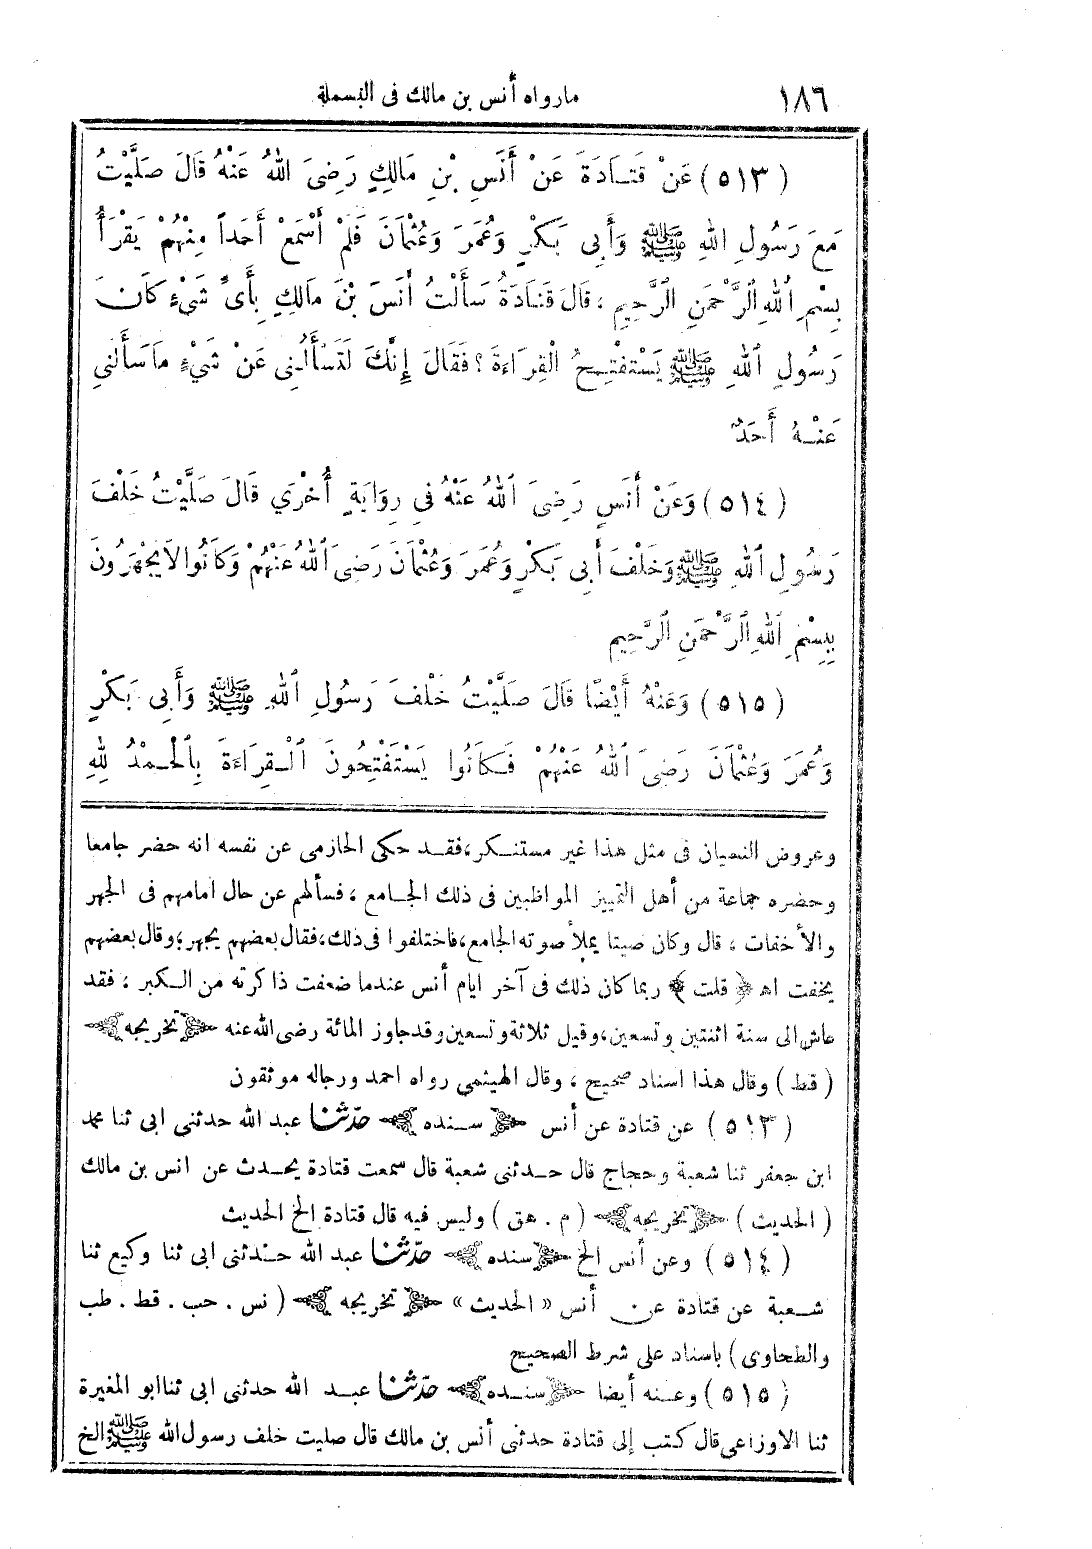 ١٨٦ مارواه أنس بن مالك فى البسملة
(٥١٣) عَنْ قَتَادَةَ عَنْ أَنَسِ بْنِ مَالِكٍ رَضِىَ اللهُ عَنْهُ قَالَ صَلَّيْتُ
مَعَ رَسُولِ اللهِ ﷺ وَأَبِى بَكْرٍ وَعُمَرَ وَعُثْمَانَ فَلَمْ أَسْمَعْ أَحَداً مِنْهُمْ يَقْرَأُ
بِسْمِ اللهِ الرَّحْمَنِ الرَّحِيمِ ، قَالَ قَتَادَةُ سَأَلْتُ أَنَسَ بْنَ مَالِكٍ بِأَىِّ شَىْءٍ كَانَ
رَسُولِ اللهِ ﷺ يَسْتَفْتِحُ الْقِرَاءَةَ ؟ فَقَالَ إِنَّكَ لَتَسْأَلُنِى عَنْ شَىْءٍ مَا سَأَلَنِي
عَنْهُ أَحَدٌ
(٥١٤) وَعَنْ أَنَسٍ رَضِىَ اللهُ عَنْهُ فِي رِوَايَةٍ أُخْرَي قَالَ صَلَّيْتُ خَلْفَ
رَسُولِ اللهِ ﷺ وَخَلْفَ أَبِى بَكْرٍ وَعُمَرَ وَعُثْمَانَ رَضِىَ اللهُ عَنْهُمْ وَكَانُوا لاَ يَجْهَرُونَ
بِبِسْمِ اللهِ الرَّحْمَنِ الرَّحِيمِ
(٥١٥) وَعَنْهُ أَيْضًا قَالَ صَلَّيْتُ خَلْفَ رَسُولِ اللهِ ﷺ وَأَبِى بَكْرٍ
وَعُمَرَ وَعُثْمَانَ رَضِىَ اللهُ عَنْهُمْ فَكَانُوا يَسْتَفْتِحُونَ الْقِرَاءَةَ بِالْحَمْدُ لِلهِ
وعروض النسيان فى مثل هذا غير مستنكر، فقد حكى الحازمى عن نفسه انه حضر جامعا
وحضره جماعة من أهل التمييز المواظبين فى ذلك الجامع ، فسألهم عن حال امامهم فى الجهر
والأخفات ، قال وكان صيتا يملأ صوته الجامع، فاختلفوا فى ذلك، فقال بعضهم يجهر؛ وقال بعضهم
يخفت اهـ ﴿ قلت ﴾ ربما كان ذلك فى آخر ايام أنس عندما ضعفت ذاكرته من الكبر ، فقد
عاش الى سنة اثنتين وتسعين، وقيل ثلاثة وتسعين وقد جاوز المائة رضى الله عنه ﴿ تخريجه ﴾
( قط ) وقال هذا اسناد صحيح ، وقال الهيثمي رواه احمد ورجاله موثقون
(٥١٣) عن قتادة عن أنس ﴿ سنده ﴾ حدّثنا عبد الله حدثنى ابى ثنا محمد
ابن جعفر ثنا شعبة وحجاج قال حدثنى شعبة قال سمعت قتادة يحدث عن انس بن مالك
( الحديث ) ﴿ تخريجه ﴾ ( م . هق ) وليس فيه قال قتادة الخ الحديث
(٥١٤) وعن أنس الخ ﴿ سنده ﴾ حدّثنا عبد الله حدثنى ابى ثنا وكيع ثنا
شعبة عن قتادة عن أنس « الحديث » ﴿ تخريجه ﴾ ( نس . حب . قط . طب
والطحاوى ) باسناد على شرط الصحيح
(٥١٥) وعنه أيضا ﴿ سنده ﴾ حدّثنا عبد الله حدثنى ابى ثنا ابو المغيرة
ثنا الاوزاعى قال كتب إلى قتادة حدثنى أنس بن مالك قال صليت خلف رسول الله ﷺ الخ